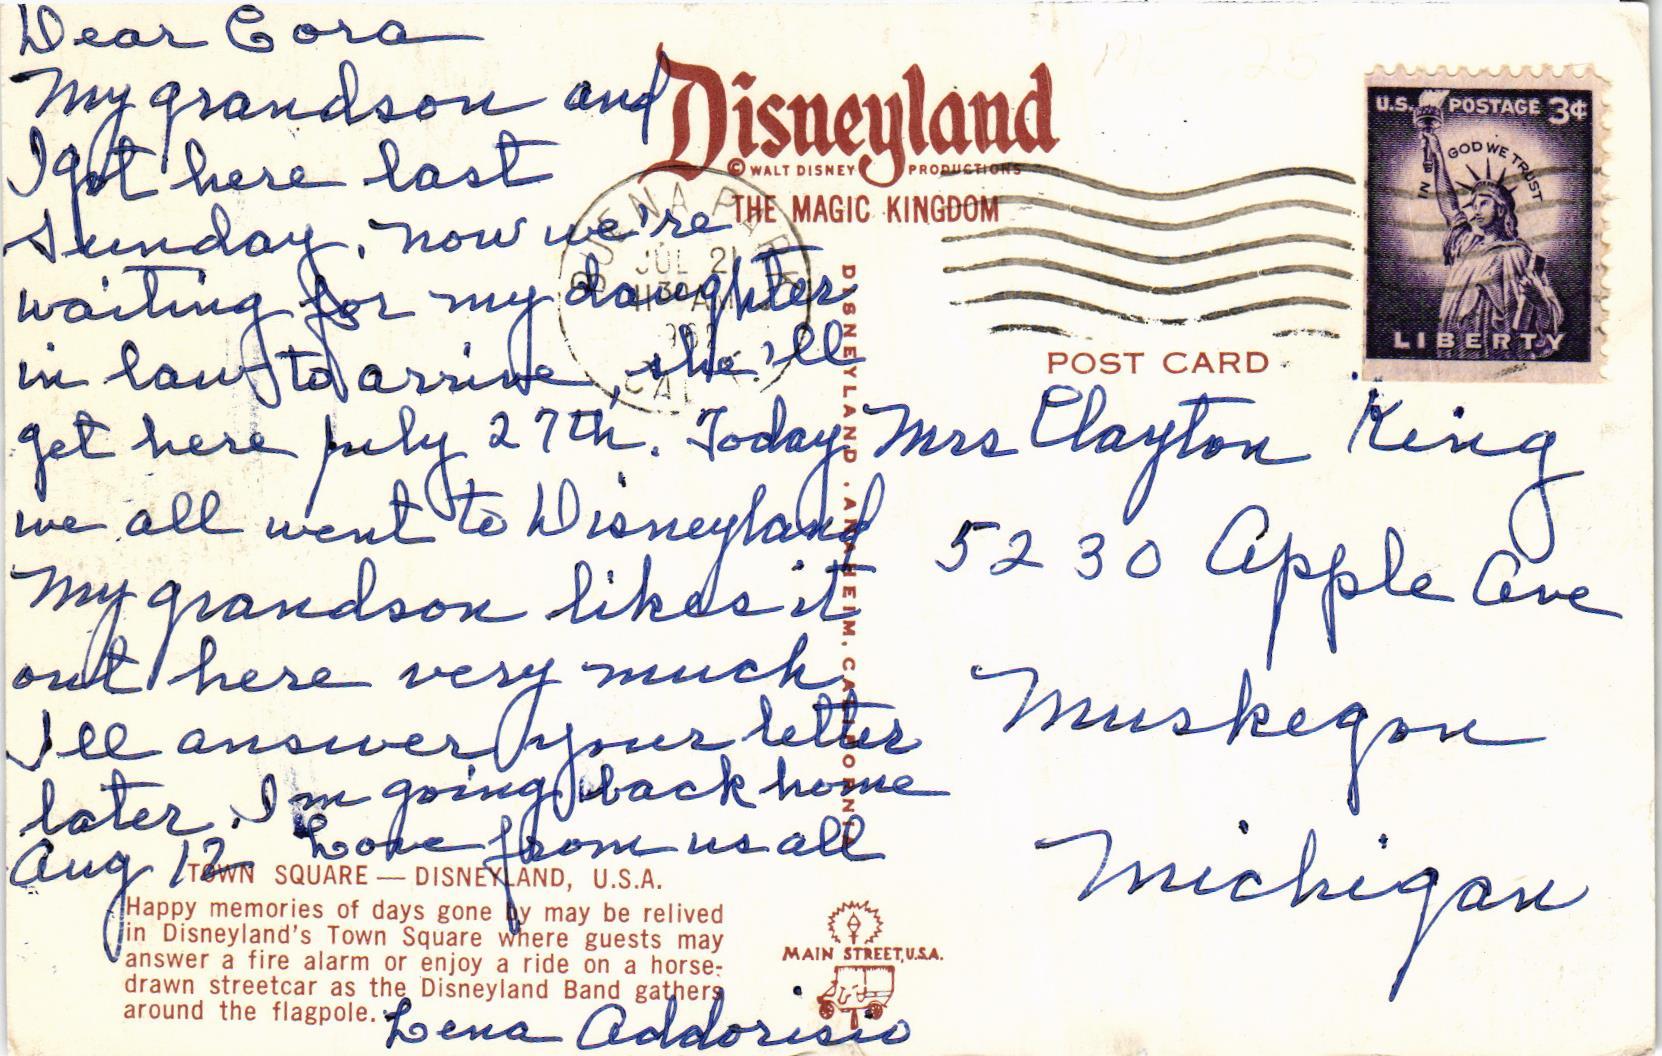 Dear Cora
My grandson and
I got here last
Sunday, now we're
waiting for my daughter
in law to arrive, she'll
get here July 27th. Today
we all went to Disneyland
My grandson likes it
out here very much
I'll answer your letter
later. I'm going back home
Aug 12 Love from us all
Lena Addorisio
Disneyland
© WALT DISNEY PRODUCTIONS
THE MAGIC KINGDOM
BUENA PARK
JUL 21
AM
CAL
DISNEYLAND . ANAHEIM, CALIFORNIA
U.S. POSTAGE 3¢
IN GOD WE TRUST
LIBERTY
POST CARD
Mrs Clayton King
5230 Apple Ave
Muskegon
Michigan
TOWN SQUARE — DISNEYLAND, U.S.A.
Happy memories of days gone by may be relived
in Disneyland's Town Square where guests may
answer a fire alarm or enjoy a ride on a horse-
drawn streetcar as the Disneyland Band gathers
around the flagpole.
MAIN STREET, U.S.A.